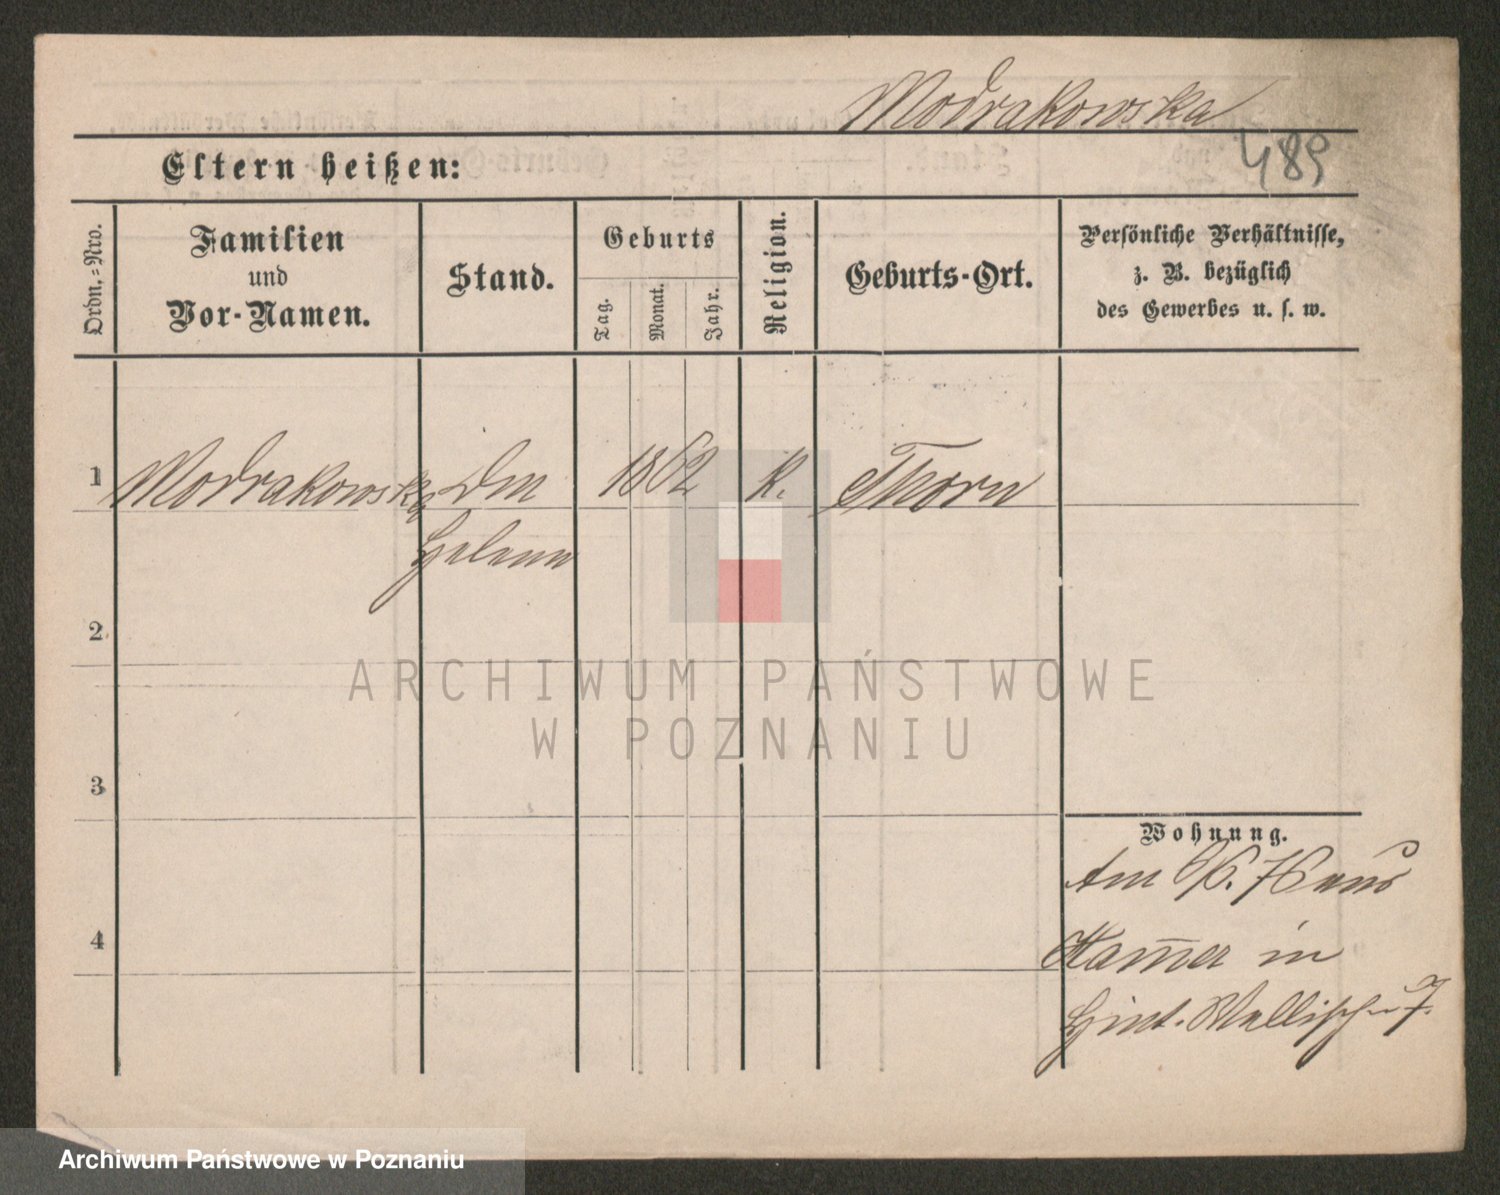 Modrakowska
489
Eltern heißen:
Ordn.=Nro.
Familien
und
Vor-Namen.
Stand.
Geburts
Tag.
Monat.
Jahr.
Religion.
Geburts-Ort.
Persönliche Verhältnisse,
z. B. bezüglich
des Gewerbes u. s. w.
1 Modrakowska Dm 1862 K. Thorn
Helena
2
3
4
Wohnung.
Am 6/6. 76 aus
Kam̄er in
Hint. Wallisch. 7.
ARCHIWUM PAŃSTWOWE
W POZNANIU
Archiwum Państwowe w Poznaniu